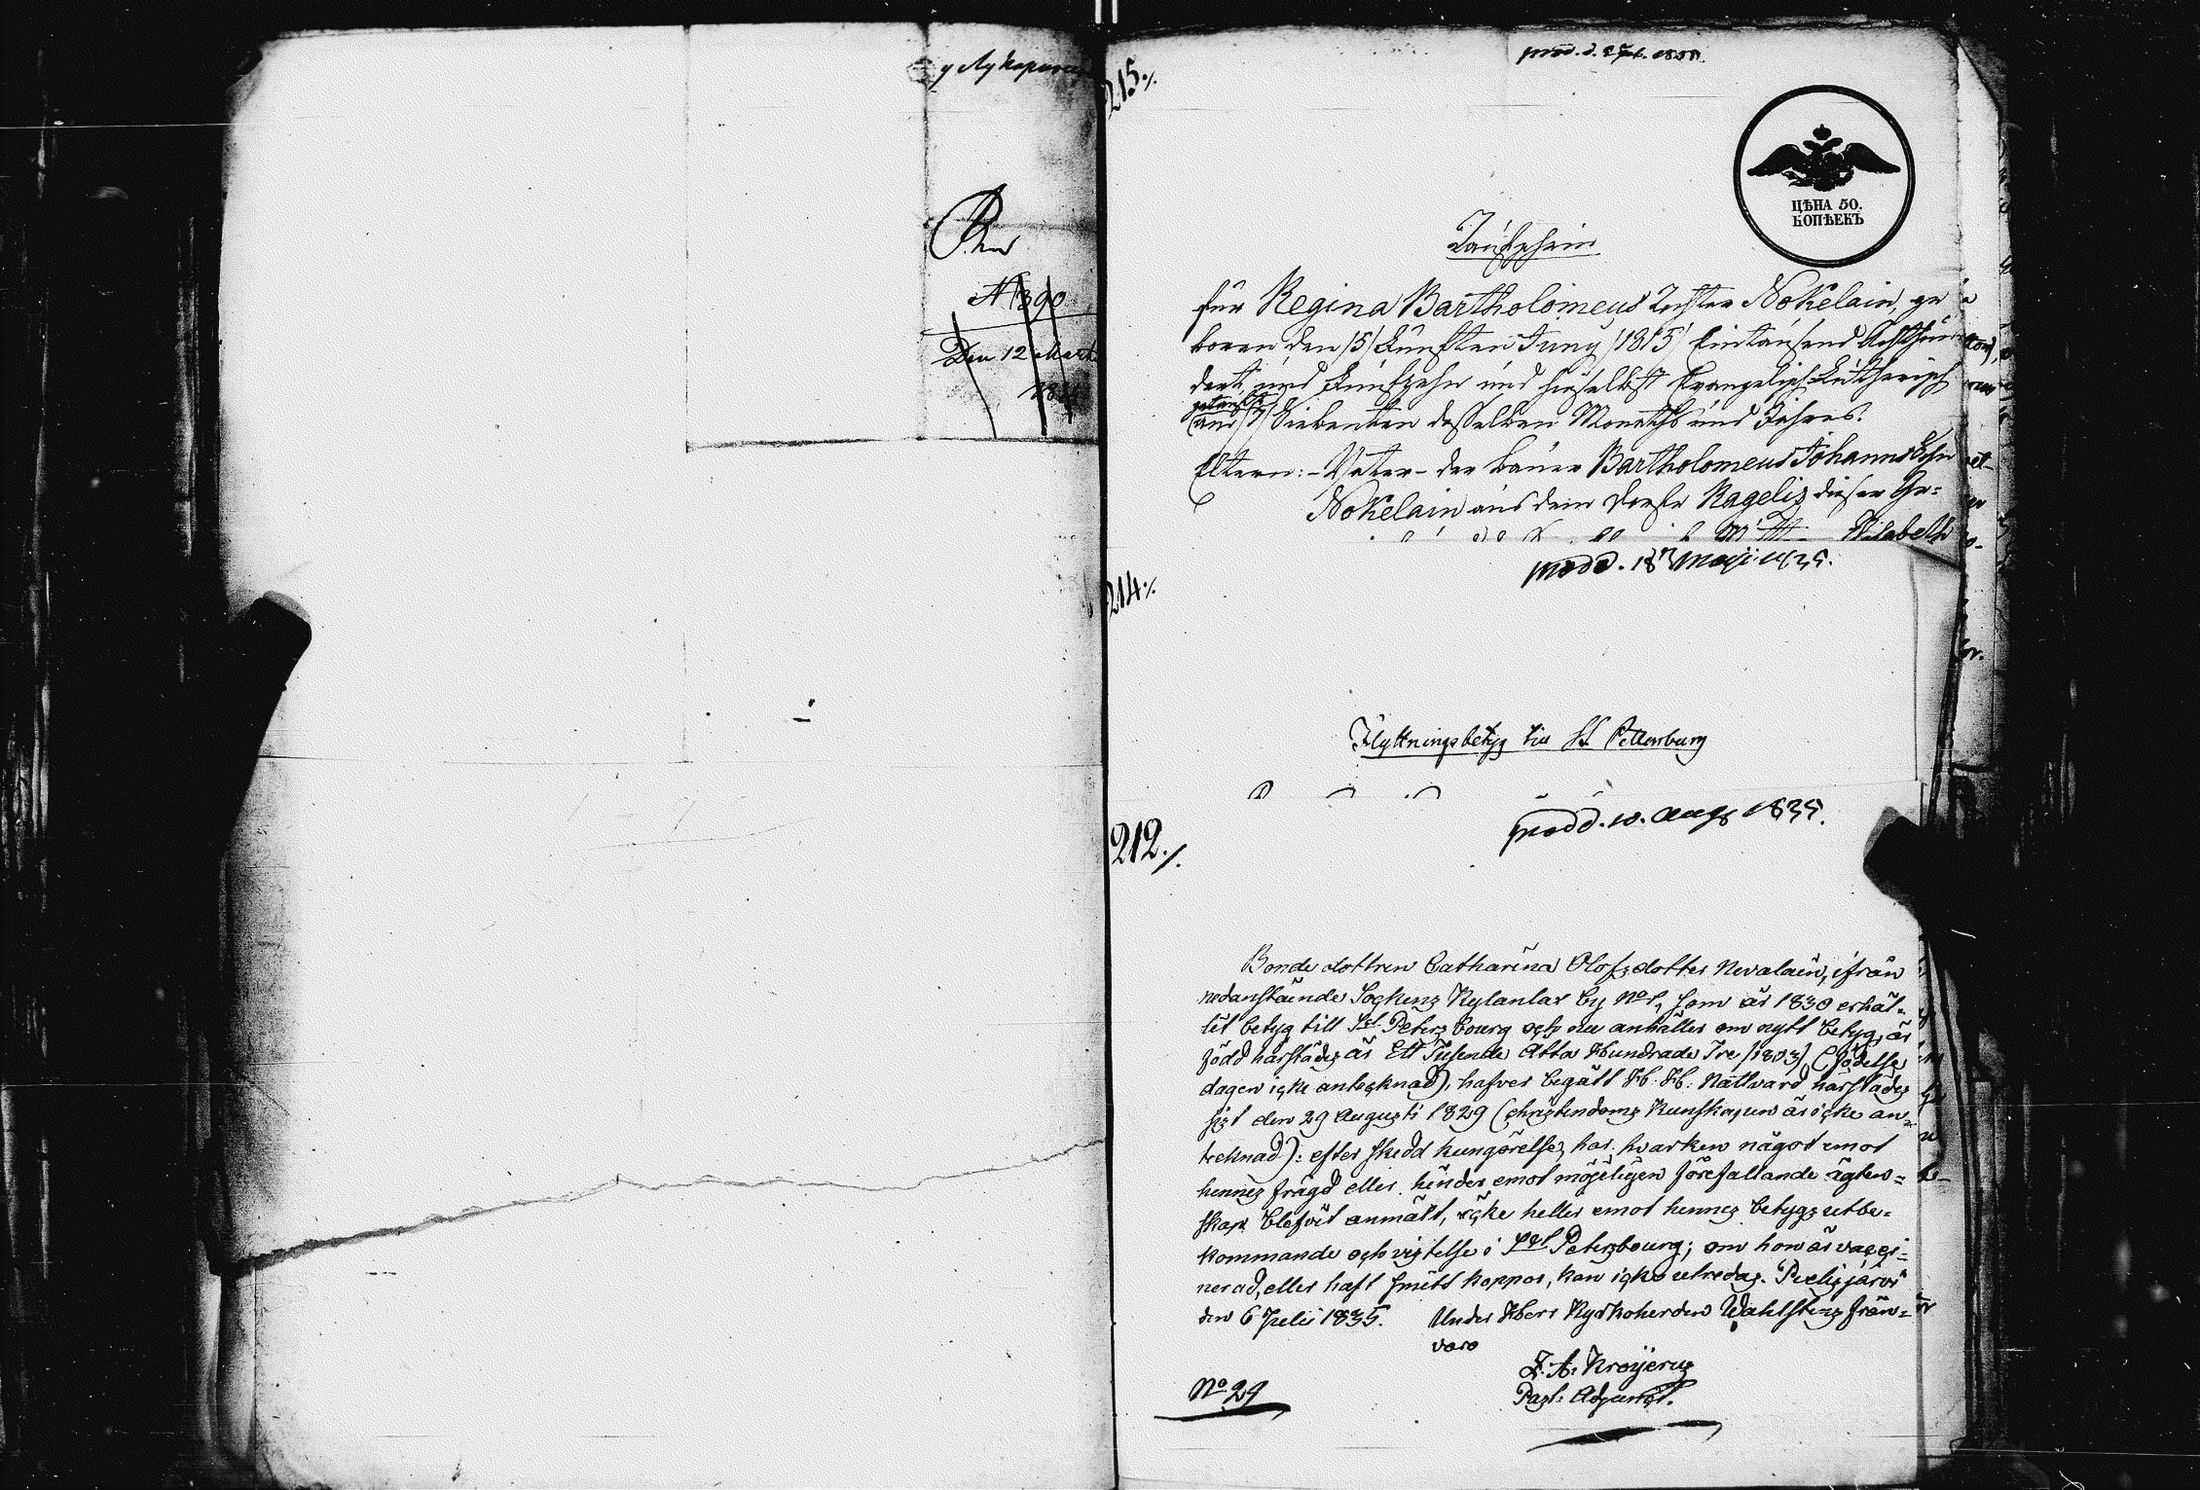 N 390
Den 12 Mart
215 ⁒
prod. d.
ЦѢНА 50.
КОПѢЕКЪ
Taufschein
für Regina Bartholomeus Tochter Nokelain, ge
boren den /5/ Fünften Juny /1815/ Eintausend Achthun-
dert und Fünfzehn und hieselbst Evangelisch-Lutherisch
getauft
am /7/ Siebenten desselben Monaths und Jahres.
Eltern: - Vater - der Bauer Bartholomeus Johanns Sohn
Nokelain aus dem Dorfe dieser Ge=
Elisabeth
214 ⁒
prod. 18 Maji 1835.
Flyttningsbetyg till St Pettersburg
212 ⁒
prod. 10. Aug 1835.
Bonde dottren Catharina Olofsdotter Nevalain, ifrån
nedanstående Sockens Kylanlax by No 1, som år 1830 erhål-
lit betyg till Sct Petersbourg och nu anhåller om nytt betyg, är
född härstädes år Ett Tusende Åtta Hundrade Tre /1803/ (födelse
dagen icke antecknad), hafver begått H. H: Nattvard härstädes
sist den 29 Augusti 1829 (christendoms kunskapen är icke an-
tecknad): efter skedd kungörelse, har hvarken något emot
hennes frägd eller hinder emot möjeligen förefallande ägten=
skap blefvit anmält, icke heller emot hennes betygs utbe=
kommande och vistelse i Sct Petersbourg; om hon är vacci=
nerad, eller haft smitt koppor, kan icke utredas. Pielisjärvi
den 6 Julii 1835. Under Herr Kyrkoherden Wahlstens från=
varo
Past: Adjunct.
No 29